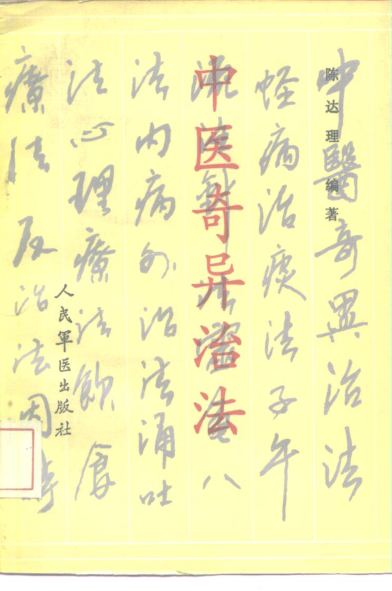 陈达理编著
中医奇异治法
人民軍医出版社
中醫奇異治法
怪病治痰法子午
八
法内病外治法涌吐
法心理療法飲食
療法反治法因時